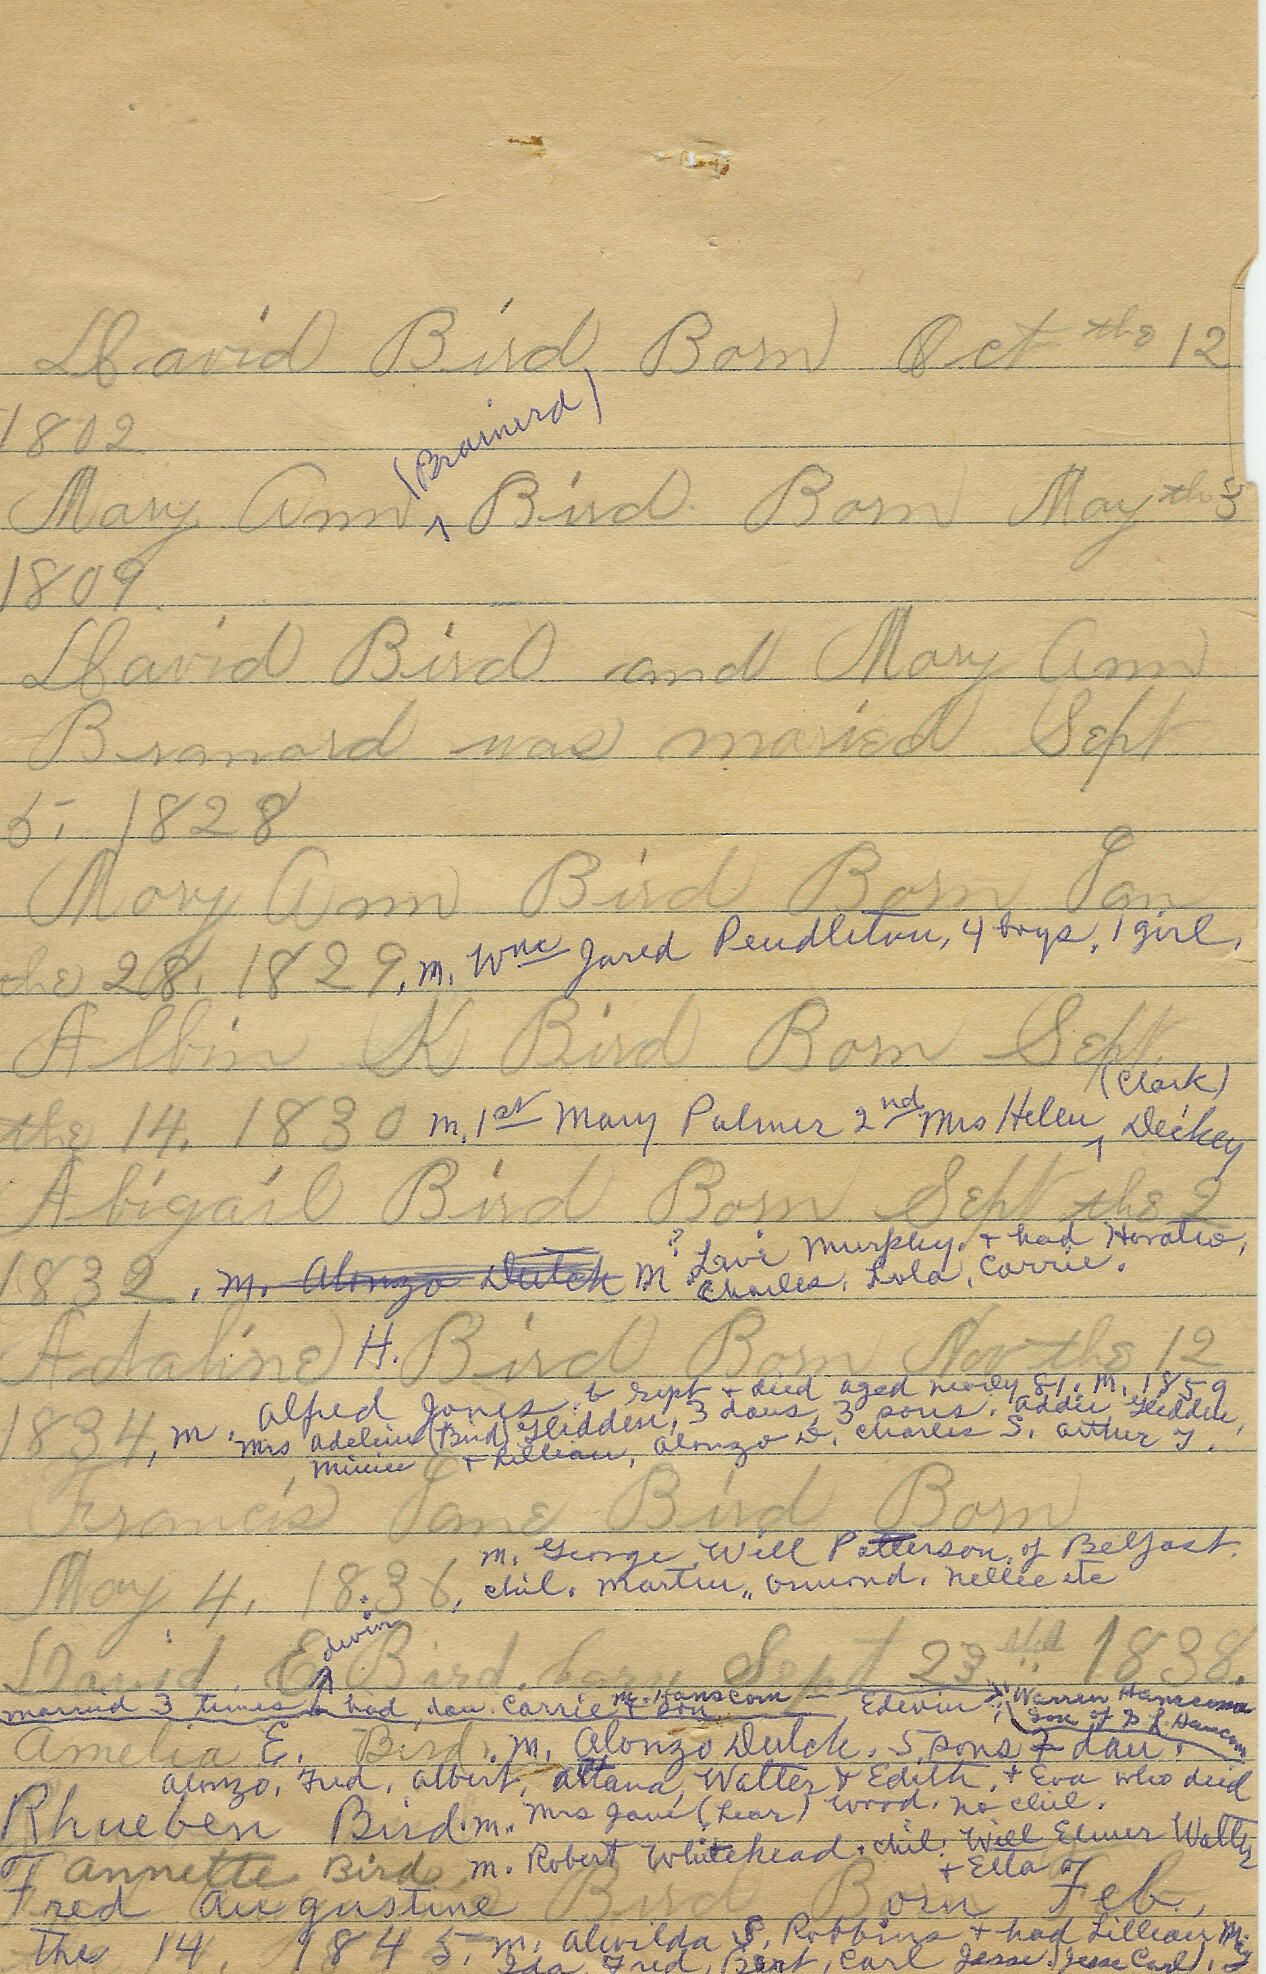 David Bird Born Oct the 12
1802
(Brainerd)
Mary Ann ^ Bird. Born May the 3
1809.
David Bird and Mary Ann
Branard was maried Sept
5, 1828
Mary Ann Bird Born Jan
the 28, 1829, m. Wm Jared Pendleton, 4 boys, 1 girl.
Albin K Bird Born Sept
(Clark)
the 14, 1830 m. 1st Mary Palmer 2nd Mrs Helen ^ Dickey
Abigail Bird Born Sept the 2
1832, m. Alonzo Dutch m ? Levi Murphy + had Horatio,
Charles, Lola, Carrie.
Adaline H. Bird Born Nov the 12
1834, m. Alfred Jones. b Sept + died aged nearly 81. m. 1859
Mrs Adeline (Bird) Glidden, 3 daus, 3 sons. Addie Glidden,
Minnie + Lillian, Alonzo D. Charles S. Arthur
Francis Jane Bird Born
m. George Will Patterson of Belfast.
May 4, 1836, chil. Martin, Ormond, Nellie etc
David E. Bird born Sept 23 1838.
married 3 times had dau. Carrie m. Hanscom Edwin
Warren Hanscom
son of
Amelia E. Bird. m. Alonzo Dutch. 5 sons + dau.
Alonzo, Fred, Albert, Walter + Edith, + Eva who died
Rhueben Bird. m. Mrs Jane (Lear) Wood. no chil.
Fannette Bird m. Robert Whitehead. chil. Will Elmer Walter
+ Etta
Fred Augustine Bird Born Feb.
the 14, 1845. m. Alvilda S. Robbins + had Lillian May
Ida, Fred, Bert, Carl Jesse. (Jesse Carl).